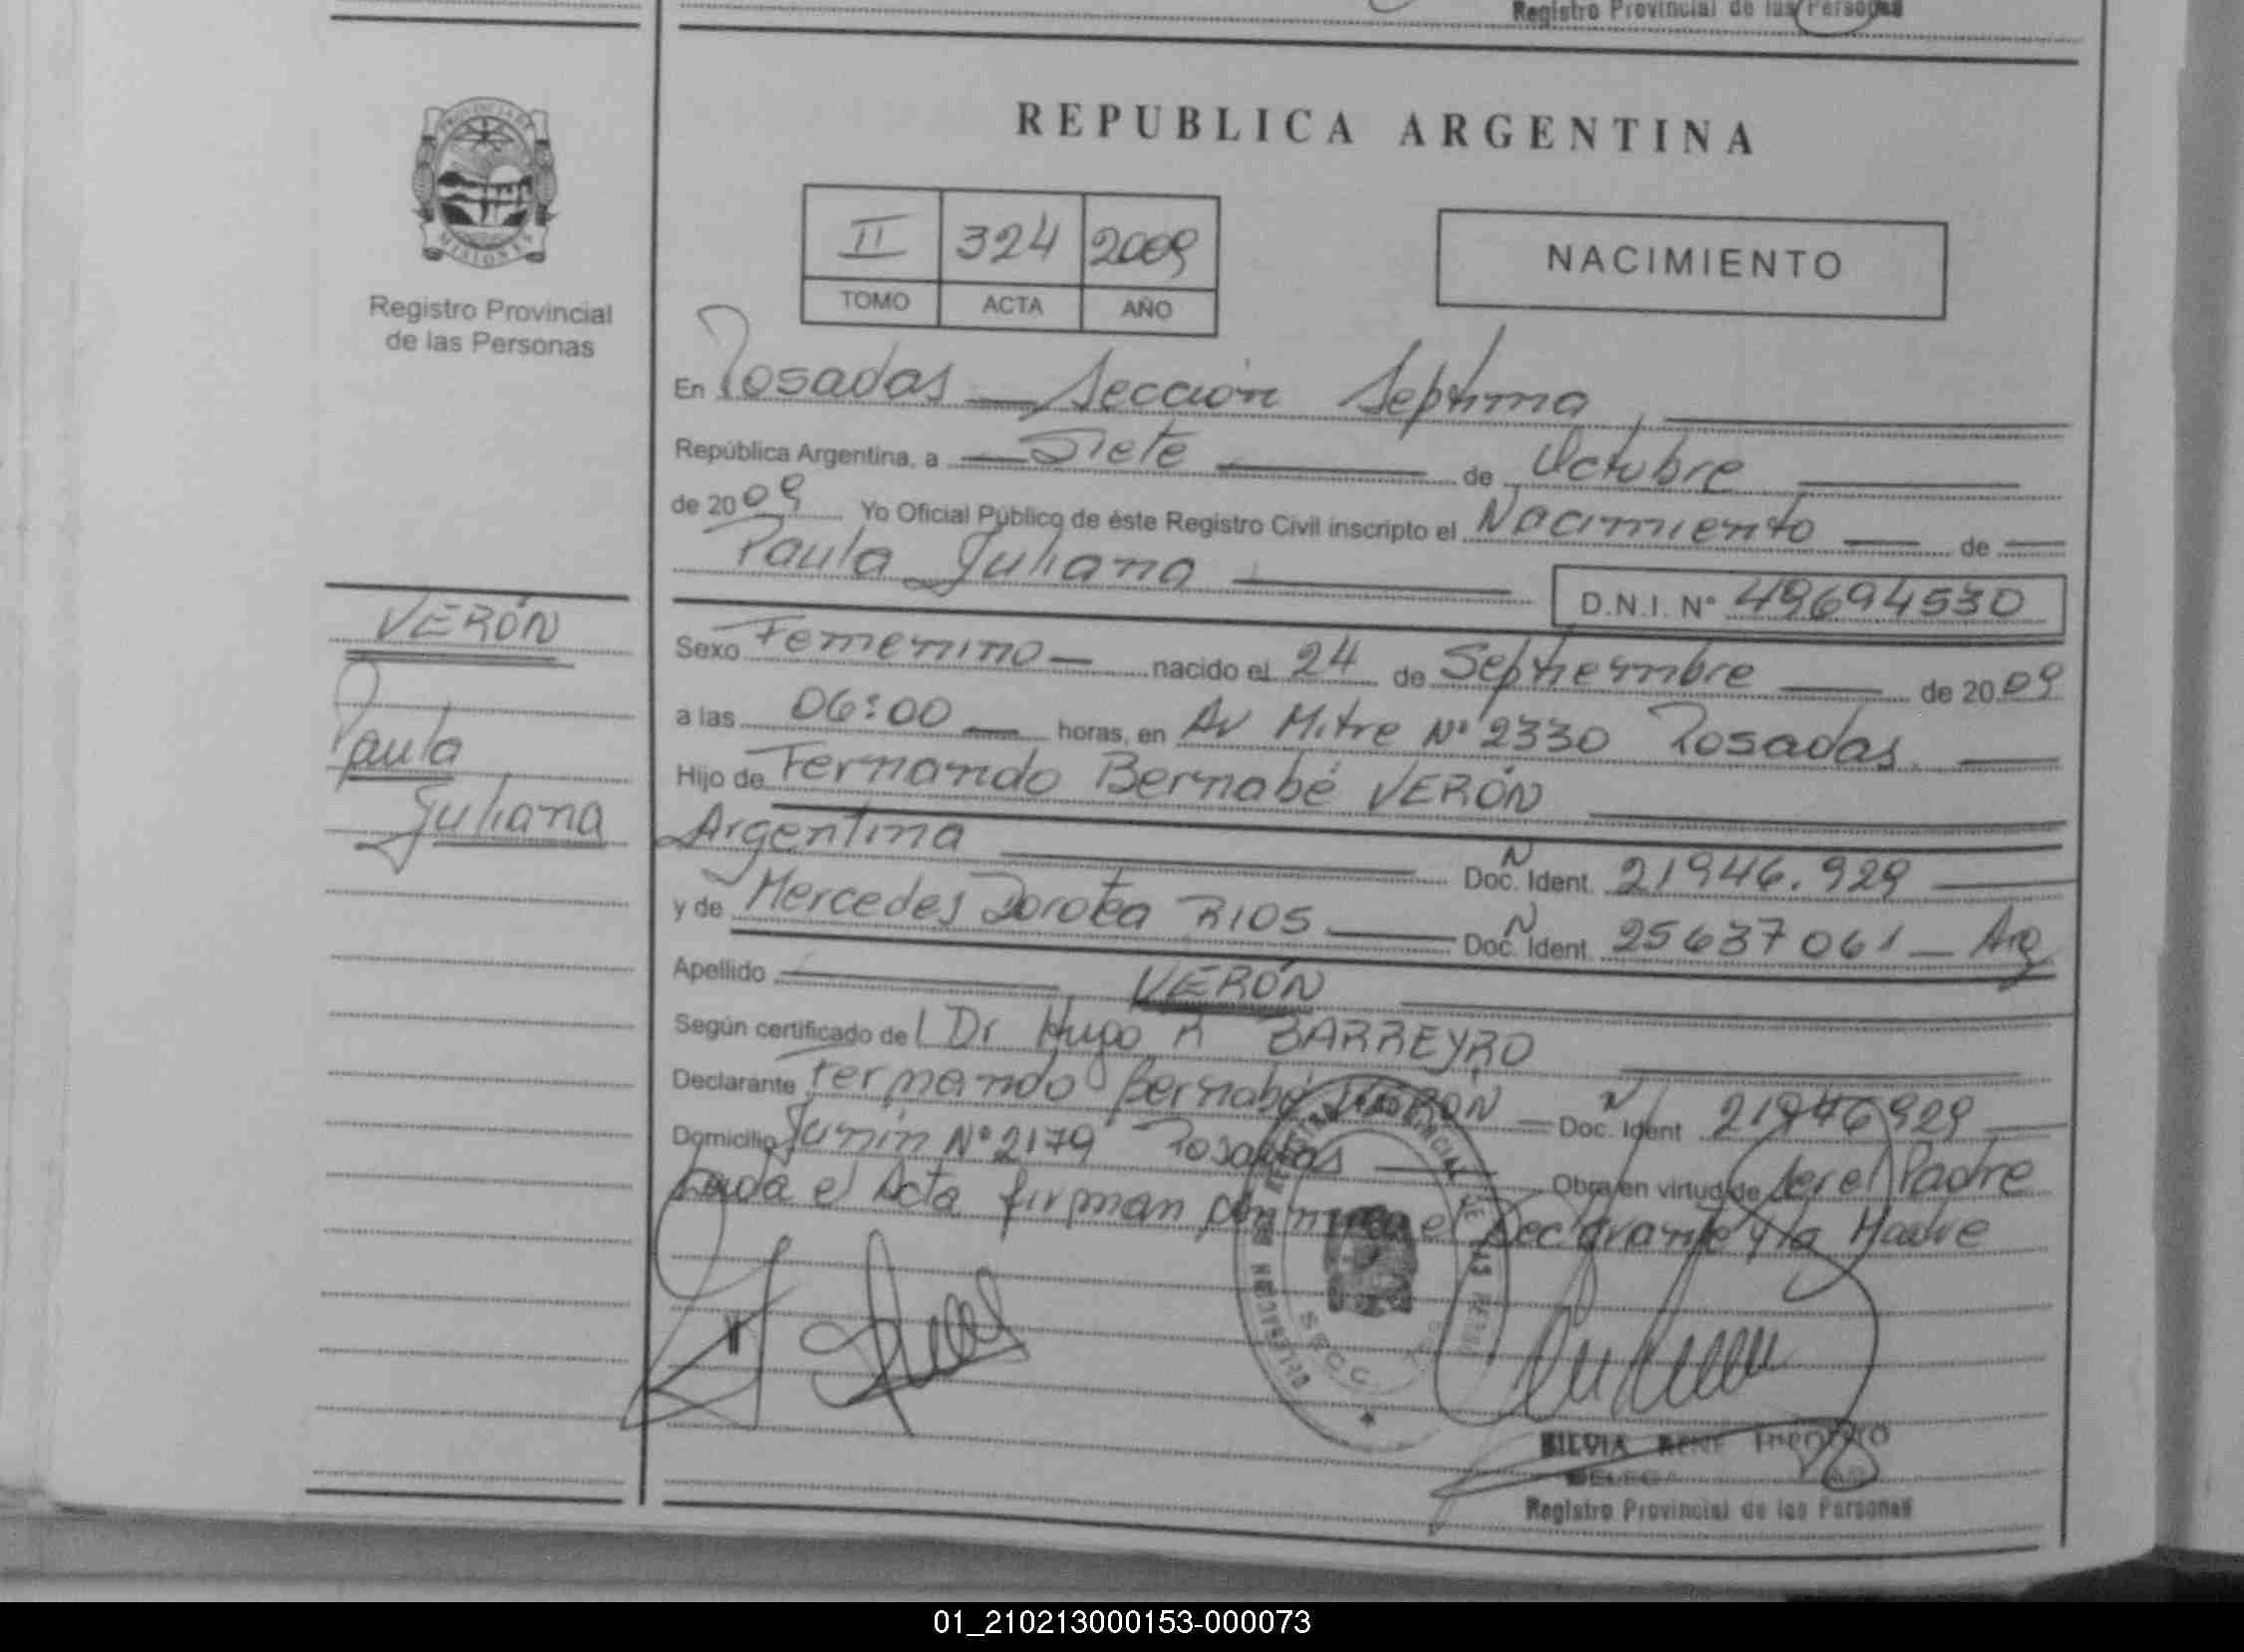 Registro Provincial de las Personas
PROVINCIA DE
MISIONES
Registro Provincial
de las Personas
REPUBLICA ARGENTINA
II 324 2009
TOMO ACTA AÑO
NACIMIENTO
En Posadas — Sección Septima,
República Argentina, a — Siete — de Octubre —
de 2009 Yo Oficial Público de éste Registro Civil inscripto el Nacimiento — de —
Paula Juliana — D.N.I. Nº 49694530
VERÓN
Paula
Juliana
Sexo Femenino — nacido el 24 de Septiembre — de 2009
a las 06:00 — horas, en Av Mitre Nº 2330 Posadas. —
Hijo de Fernando Bernabé VERÓN —
Argentina — Doc. Ident. N 21946.929 —
y de Mercedes Dorotea RIOS — Doc. Ident. N 25637061 — Arg
Apellido — VERÓN —
Según certificado de l Dr Hugo R BARREYRO —
Declarante Fernando Bernabé VERÓN — Doc. Ident N 21946929 —
Domicilio Junin Nº 2179 Posadas — Obra en virtud de ser el Padre
Leida el Acta firman el Declarante y la Madre
SILVIA RENE
Registro Provincial de las Personas
01_210213000153-000073